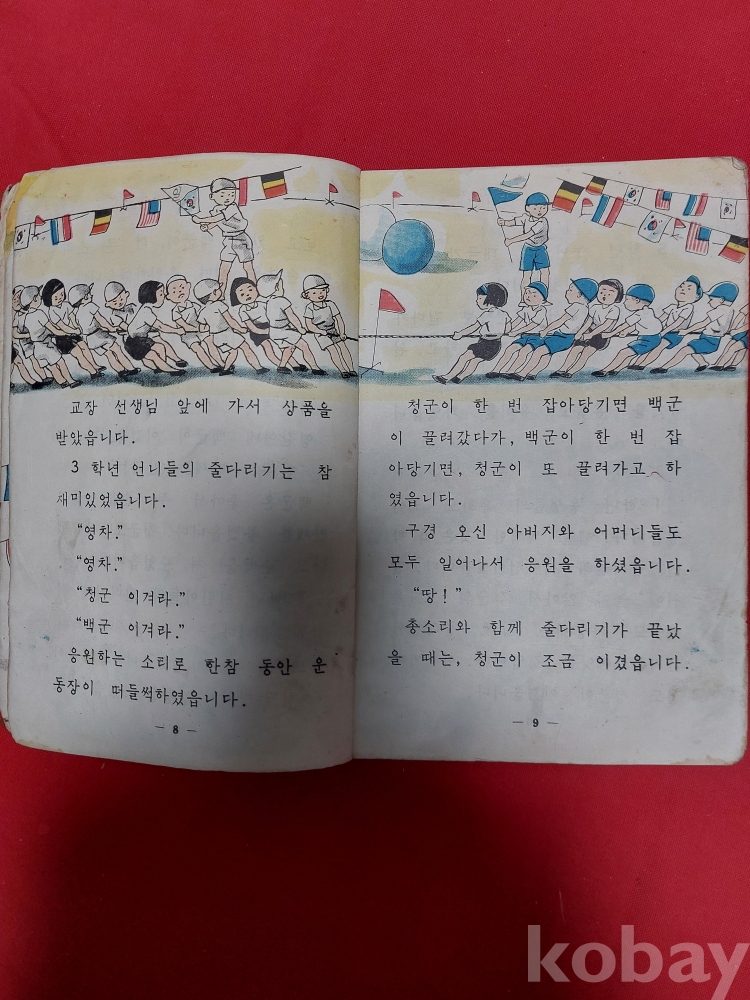 교장 선생님 앞에 가서 상품을
받았읍니다.
3 학년 언니들의 줄다리기는 참
재미있었읍니다.
"영차."
"영차."
"청군 이겨라."
"백군 이겨라."
응원하는 소리로 한참 동안 운
동장이 떠들썩하였읍니다.
— 8 —
청군이 한 번 잡아당기면 백군
이 끌려갔다가, 백군이 한 번 잡
아당기면, 청군이 또 끌려가고 하
였읍니다.
구경 오신 아버지와 어머니들도
모두 일어나서 응원을 하셨읍니다.
"땅!"
총소리와 함께 줄다리기가 끝났
을 때는, 청군이 조금 이겼읍니다.
— 9 —
kobay